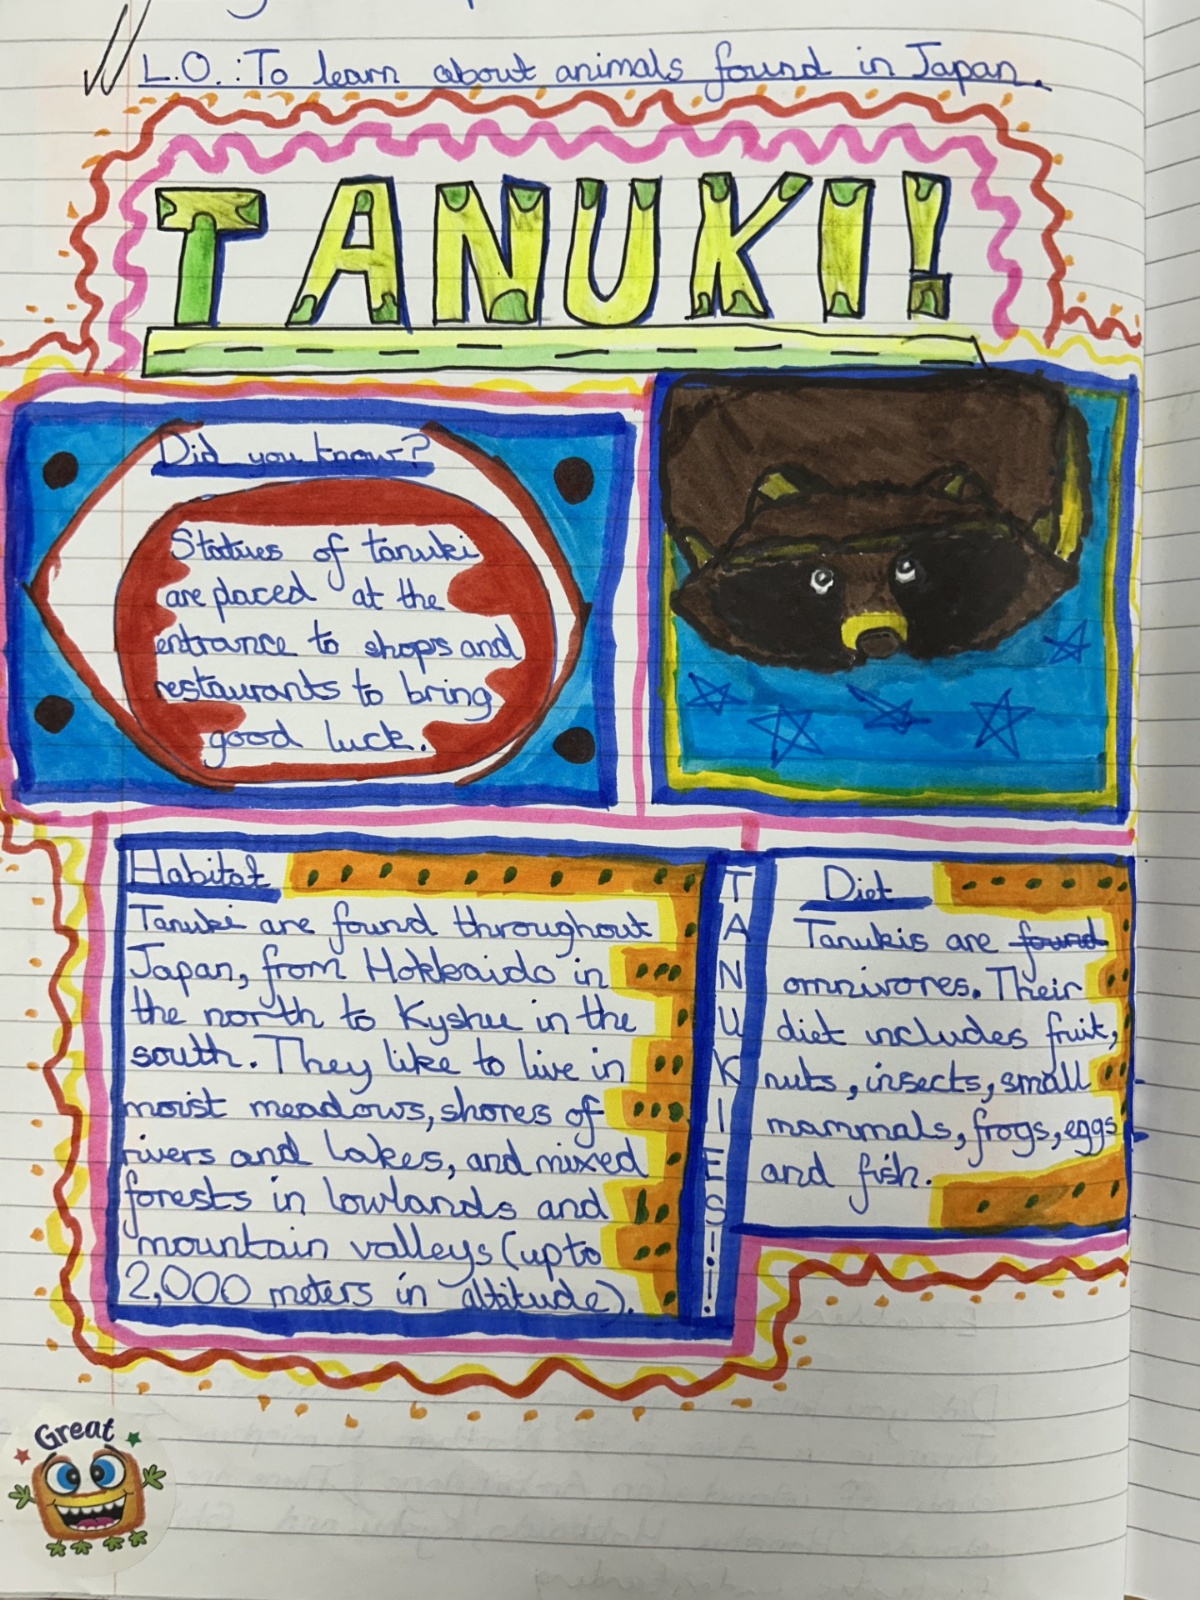 L.O.: To learn about animals found in Japan.
TANUKI!
Did you know?
Statues of tanuki
are placed at the
entrance to shops and
restaurants to bring
good luck.
Habitat
Tanuki are found throughout
Japan, from Hokkaido in
the north to Kyshu in the
south. They like to live in
moist meadows, shores of
rivers and lakes, and mixed
forests in lowlands and
mountain valleys (up to
2,000 meters in altitude).
TANUKIES!!!
Diet
Tanukis are found
omnivores. Their
diet includes fruit,
nuts, insects, small
mammals, frogs, eggs
and fish.
Great